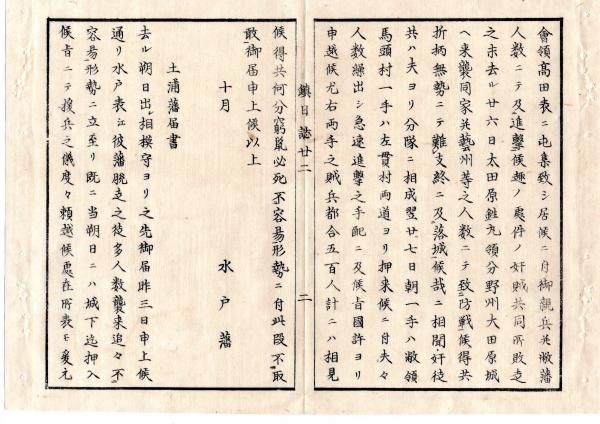 會領高田表ニ屯集致シ居候ニ付御親兵并敝藩
人数ニテ及進擊候趣ノ處件ノ奸賊共同所敗走
之末去ル廿六日太田原鉎丸領分野州大田原城
ヘ来襲同家并藝州等之人数ニテ致防戰候得共
折柄無勢ニテ難支終ニ及落城候哉ニ相聞奸徒
共ハ夫ヨリ分隊ニ相成翌廿七日朝一手ハ敝領
馬頭村一手ハ左貫村両道ヨリ押来候ニ付夫々
人数繰出シ急速進擊之手配ニ及候旨國許ヨリ
申越候尤右両手之賊兵都合五百人計ニハ相見
鎮日誌廿二
二
候得共何分窮鼠必死不容昜形勢ニ付此段不取
敢御届申上候以上
十月 水戸藩
土浦藩届書
去ル朔日出相模守ヨリ之先御届昨三日申上候
通リ水戸表江彼藩脱走之徒多人数襲来追々不
容昜形勢ニ立至リ既ニ当朔日ニハ城下迄押入
候旨ニテ援兵之儀度々頼越候處在所表モ爰元